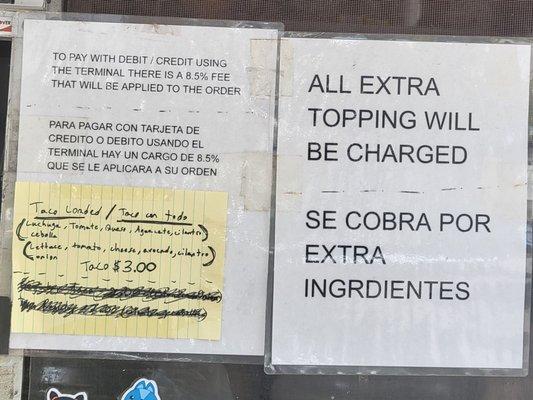 TO PAY WITH DEBIT / CREDIT USING
THE TERMINAL THERE IS A 8.5% FEE
THAT WILL BE APPLIED TO THE ORDER
PARA PAGAR CON TARJETA DE
CREDITO O DEBITO USANDO EL
TERMINAL HAY UN CARGO DE 8.5%
QUE SE LE APLICARA A SU ORDEN
Taco Loaded / Taco con todo
(Luchuga, Tomate, Queso, Aguacate, cilantro
cebolla)
(Lettace, tomato, cheese, avocado, cilantro
onion)
Taco $3.00
ALL EXTRA
TOPPING WILL
BE CHARGED
SE COBRA POR
EXTRA
INGRDIENTES